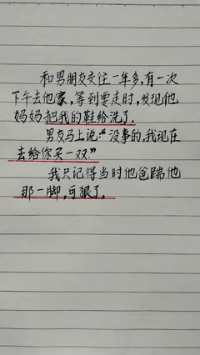 和男朋友交往一年多,有一次
下午去他家,等到要走时,发现他
妈妈把我的鞋给洗了.
男友马上说:“没事的,我现在
去给你买一双.”
我只记得当时他爸踹他
那一脚,可狠了.